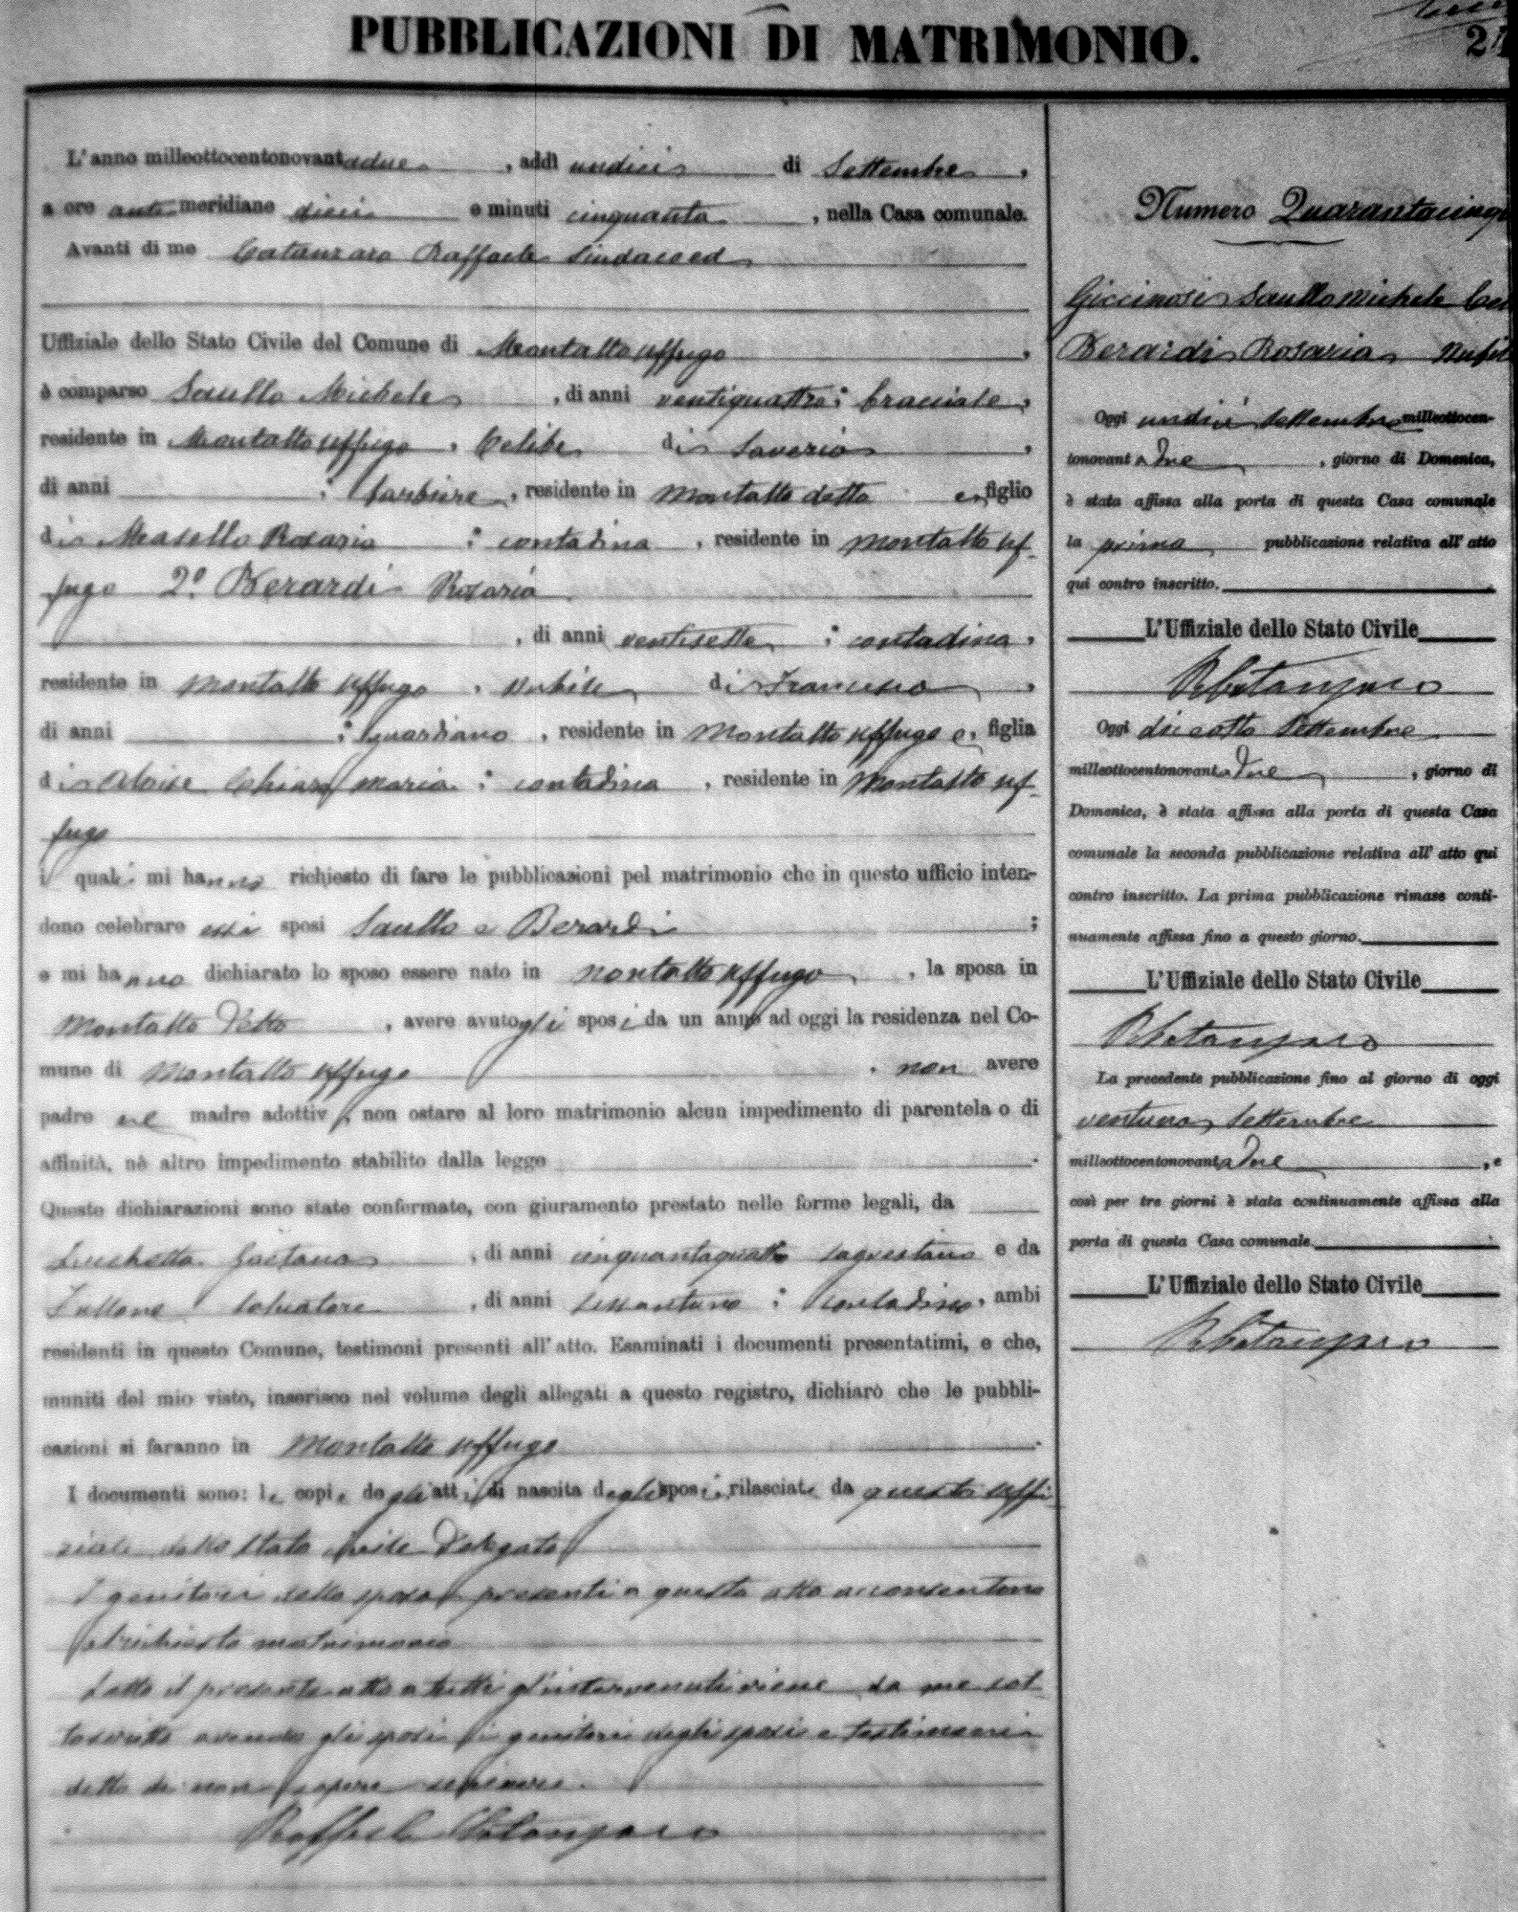 PUBBLICAZIONI DI MATRIMONIO.
L'anno milleottocentonovantadue, addì undici di Settembre,
a ore antimeridiane dieci e minuti cinquanta, nella Casa comunale.
Avanti di me Catanzaro Raffaele Sindaco ed
Uffiziale dello Stato Civile del Comune di Montalto Uffugo,
è comparso Saullo Michele, di anni ventiquattro; bracciale,
residente in Montalto Uffugo, Celibe di Saverio,
di anni ; barbiere, residente in Montalto detto e figlio
di Masello Rosaria ; contadina, residente in Montalto Uf-
fugo 2.° Berardi Rosaria
, di anni ventisette ; contadina,
residente in Montalto Uffugo, nubile di Francesco,
di anni ; guardiano, residente in Montalto Uffugo e, figlia
di Aloise Chiara Maria ; contadina, residente in Montalto Uf-
fugo
i quali mi hanno richiesto di fare le pubblicazioni pel matrimonio che in questo ufficio inten-
dono celebrare essi sposi Saullo e Berardi ;
e mi hanno dichiarato lo sposo essere nato in Montalto Uffugo, la sposa in
Montalto detto, avere avuto gli sposi da un anno ad oggi la residenza nel Co-
mune di Montalto Uffugo, non avere
padre nè madre adottivi, non ostare al loro matrimonio alcun impedimento di parentela o di
affinità, nè altro impedimento stabilito dalla legge.
Queste dichiarazioni sono state confermate, con giuramento prestato nelle forme legali, da
Luchetta Gaetano, di anni cinquantaquattro sagrestano e da
Salvatore, di anni sessantuno ; contadino, ambi
residenti in questo Comune, testimoni presenti all'atto. Esaminati i documenti presentatimi, e che,
muniti del mio visto, inserisco nel volume degli allegati a questo registro, dichiarò che le pubbli-
cazioni si faranno in Montalto Uffugo.
I documenti sono: le copie degli atti di nascita degli sposi, rilasciate da questo Uffi
ziale dello Stato Civile Delegato
I genitori dello sposo presenti a questo atto acconsentono
al richiesto matrimonio
Letto il presente atto a tutti gl'intervenuti viene da me sot
toscritto avendo gli sposi i genitori degli sposi e testimoni
detto di non sapere scrivere.
Raffaele Catanzaro
Numero Quarantacinqu
Saullo Michele Cel
Berardi Rosaria Nubil
Oggi undici Settembre milleottocen-
tonovantadue, giorno di Domenica,
è stata affissa alla porta di questa Casa comunale
la prima pubblicazione relativa all'atto
qui contro inscritto.
L'Uffiziale dello Stato Civile
R Catanzaro
Oggi diciotto Settembre
milleottocentonovantadue, giorno di
Domenica, è stata affissa alla porta di questa Casa
comunale la seconda pubblicazione relativa all'atto qui
contro inscritto. La prima pubblicazione rimase conti-
nuamente affissa fino a questo giorno.
L'Uffiziale dello Stato Civile
R Catanzaro
La precedente pubblicazione fino al giorno di oggi
ventuno Settembre
milleottocentonovantadue, e
così per tre giorni è stata continuamente affissa alla
porta di questa Casa comunale.
L'Uffiziale dello Stato Civile
R Catanzaro